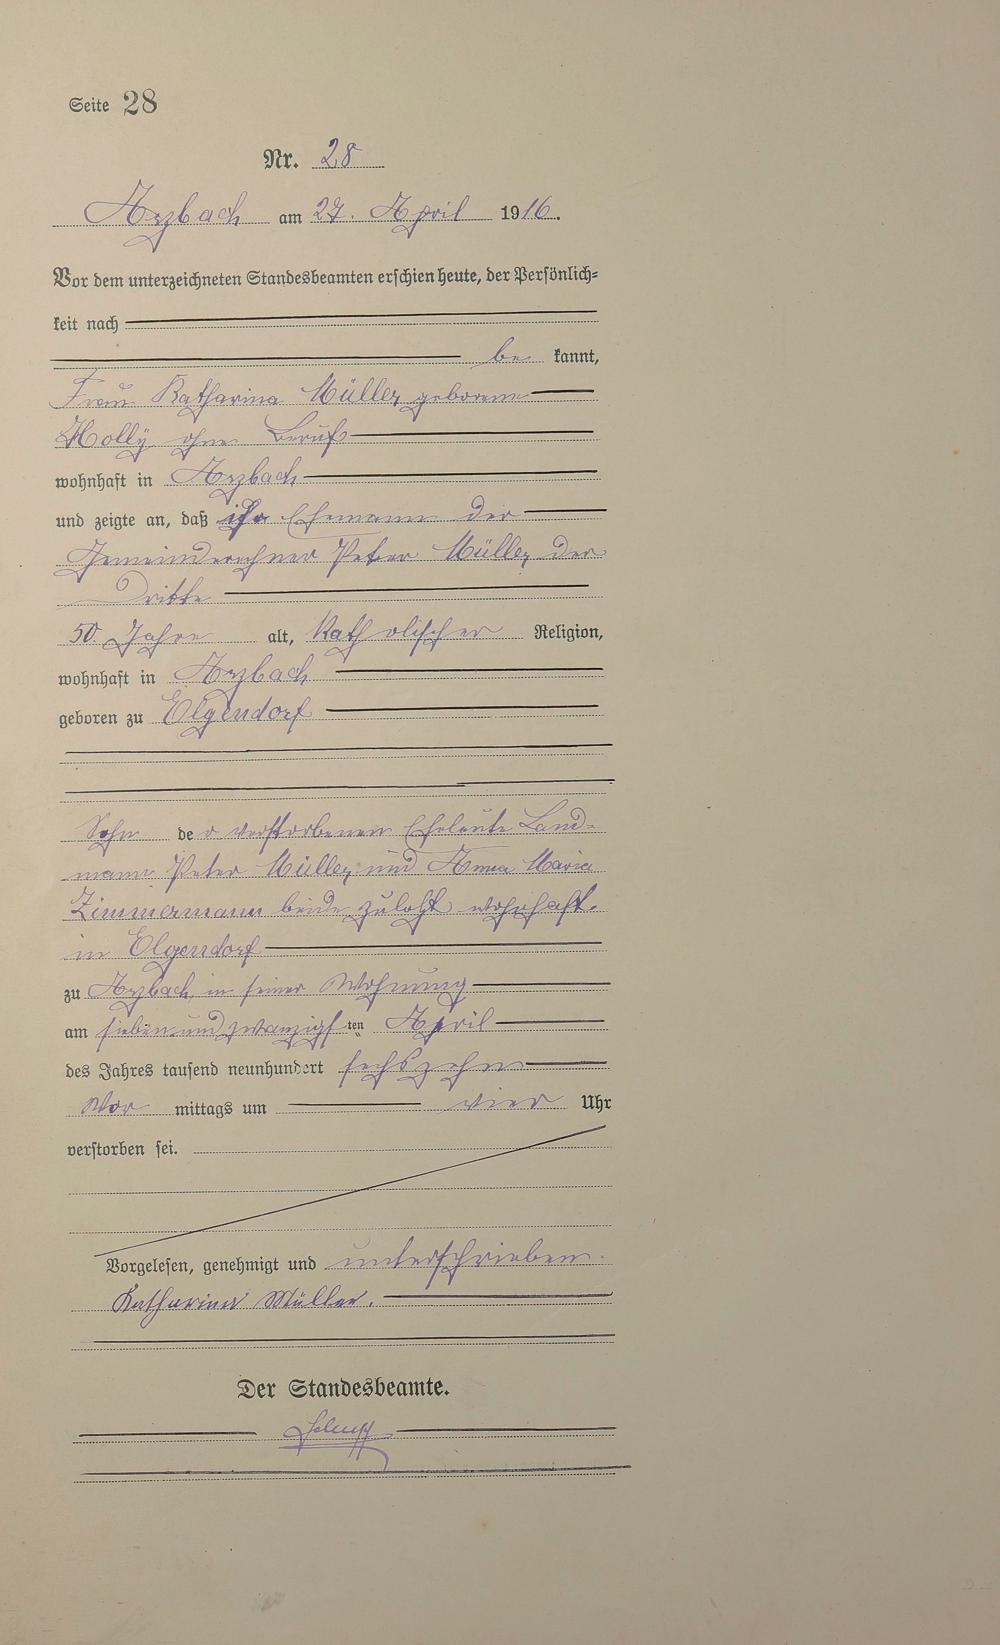 Seite 28
Nr. 28
Arzbach am 27. April 1916.
Vor dem unterzeichneten Standesbeamten erschien heute, der Persönlich-
keit nach
be kannt,
Frau Katharina Müller geborene
Holly ohne Beruf
wohnhaft in Arzbach
und zeigte an, daß ihr Ehemann der
Gemeinderechner Peter Müller der
Dritte
50 Jahre alt, katholischer Religion,
wohnhaft in Arzbach
geboren zu Elgendorf
Sohn der verstorbenen Eheleute Land-
mann Peter Müller und Anna Maria
Zimmermann beide zuletzt wohnhaft
in Elgendorf
zu Arzbach in seiner Wohnung
am sieben und zwanzigsten April
des Jahres tausend neunhundert sechszehn
Vor mittags um vier Uhr
verstorben sei.
Vorgelesen, genehmigt und unterschrieben.
Katharina Müller.
Der Standesbeamte.